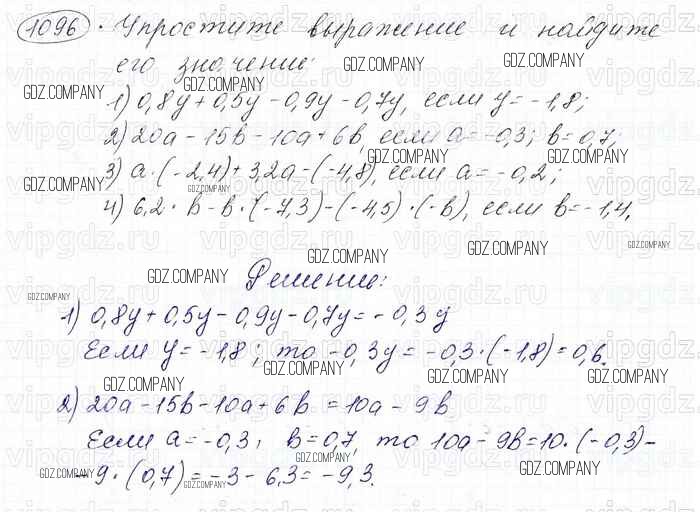 1096. Упростите выражение и найдите
его значение:
1) 0,8y + 0,5y - 0,9y - 0,7y, если y = -1,8;
2) 20a - 15b - 10a + 6b, если a = -0,3; b = 0,7;
3) a · (-2,4) + 3,2a - (-4,8), если a = -0,2;
4) 6,2 · b - b · (-7,3) - (-4,5) · (-b), если b = -1,4.
Решение:
1) 0,8y + 0,5y - 0,9y - 0,7y = -0,3y
Если y = -1,8; то -0,3y = -0,3 · (-1,8) = 0,6.
2) 20a - 15b - 10a + 6b = 10a - 9b
Если a = -0,3, b = 0,7, то 10a - 9b = 10 · (-0,3) -
- 9 · (0,7) = -3 - 6,3 = -9,3.
GDZ.COMPANY
vipgdz.ru